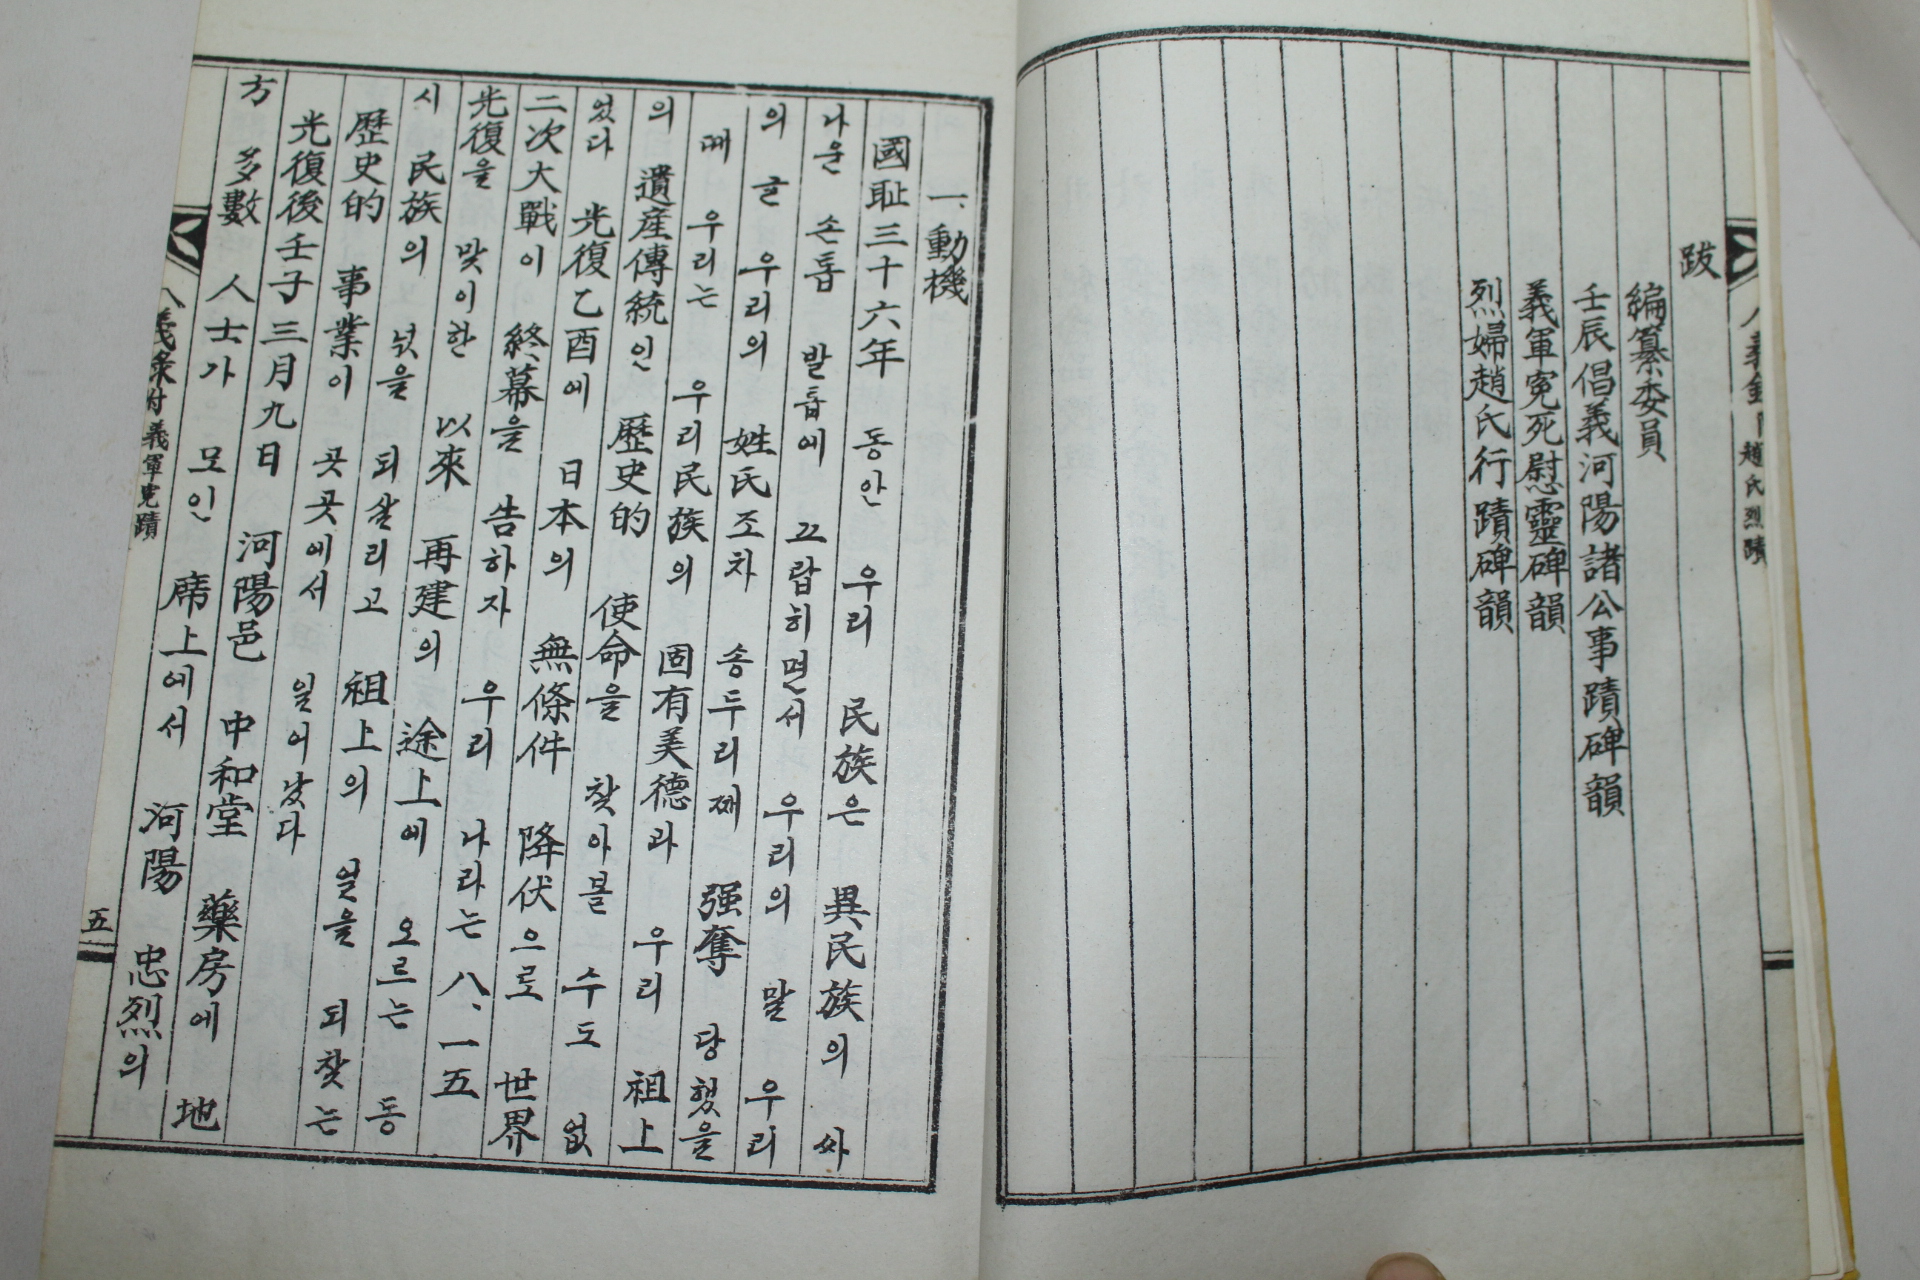 跋
編纂委員
壬辰倡義河陽諸公事蹟碑韻
義軍寃死慰靈碑韻
烈婦趙氏行蹟碑韻
趙氏烈蹟
一、動機
國耻三十六年 동안 우리 民族은 異民族의 싸
나운 손톱 발톱에 끄랍히면서 우리의 말 우리
의 글 우리의 姓氏조차 송두리째 强奪 당했을
때 우리는 우리民族의 固有美德과 우리 祖上
의 遺産傳統인 歷史的 使命을 찾아볼 수도 없
었다 光復乙酉에 日本의 無條件 降伏으로 世界
二次大戰이 終幕을 告하자 우리 나라는 八、一五
光復을 맞이한 以來 再建의 途上에 오르는 동
시 民族의 넋을 되살리고 祖上의 얼을 되찾는
歷史的 事業이 곳곳에서 일어났다
光復後壬子三月九日 河陽邑 中和堂 藥房에 地
方 多數 人士가 모인 席上에서 河陽 忠烈의
八義錄附義軍寃蹟
五